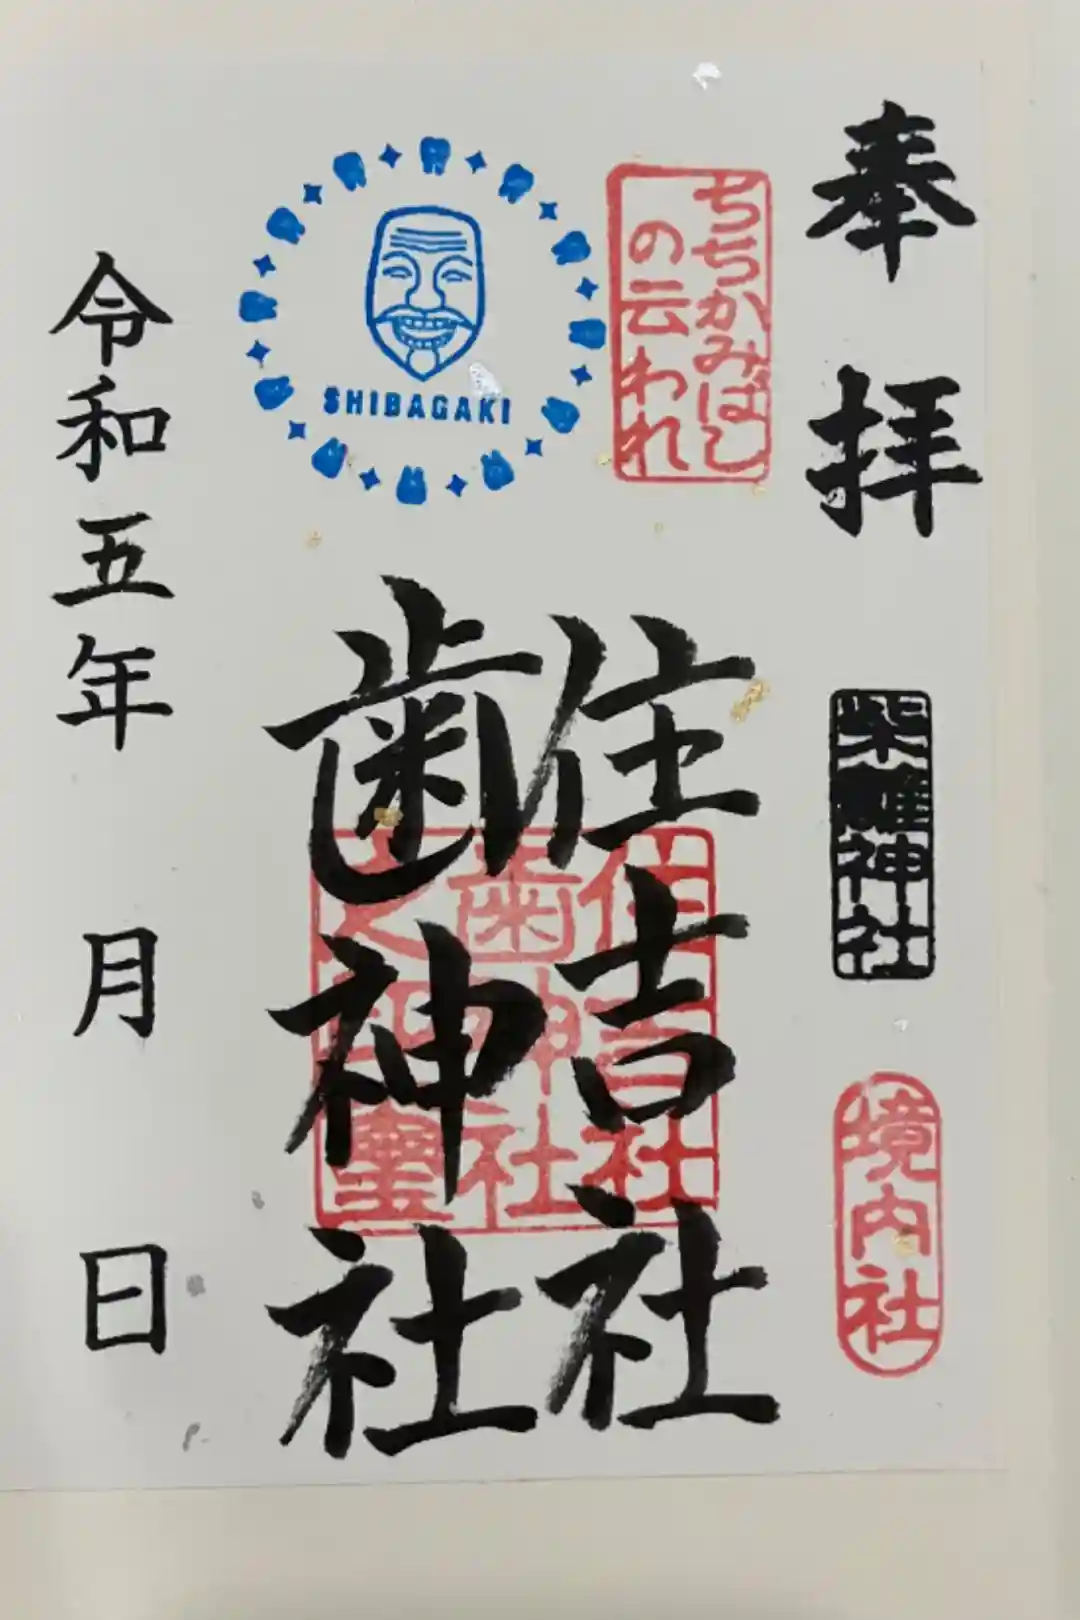 奉拝
柴籬神社
境内社
ちちかみばし
の云われ
住吉社
歯神社
住吉社
歯神社
之印璽
SHIBAGAKI
令和五年 月 日